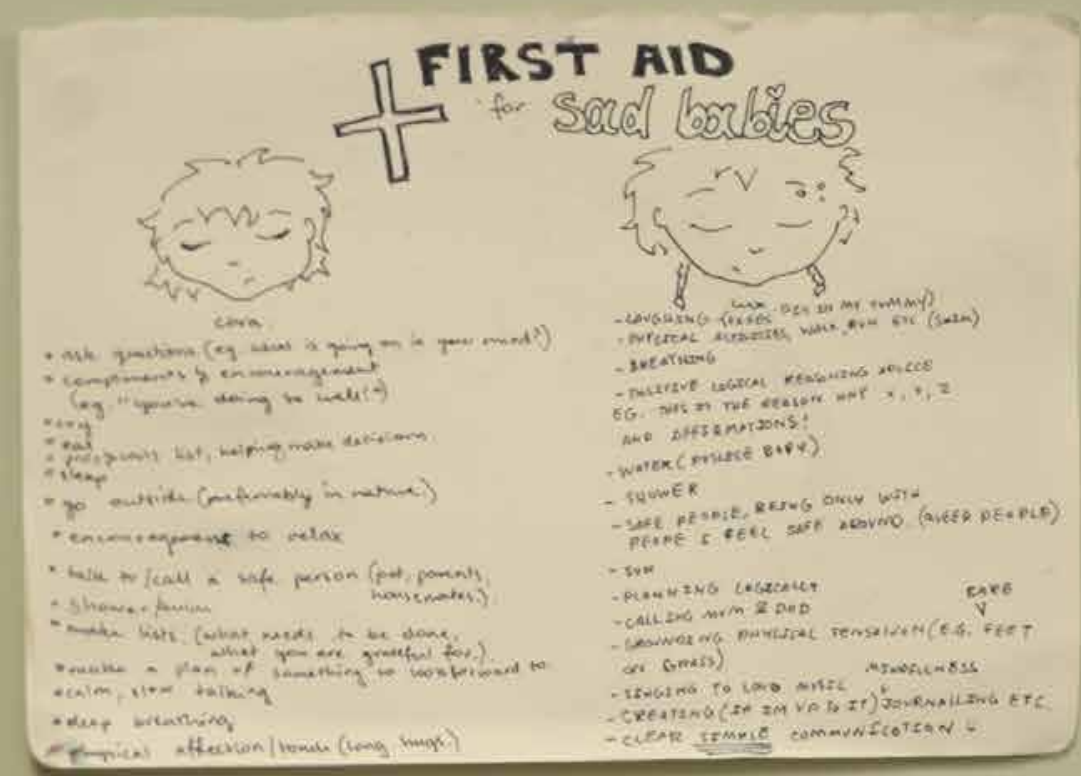 FIRST AID
for sad babies
cora
* ask questions (eg what is going on in your mind?)
* compliments & encouragement
(eg. "you're doing so well!")
* cry
* eat
* pros/cons list, helping make decisions
* sleep
* go outside (preferrably in nature.)
* encouragement to relax
* talk to/call a safe person (pat, parents,
housemates.)
* shower/swim
* make lists (what needs to be done,
what you are grateful for.)
* make a plan of something to look forward to
* calm, slow talking
* deep breathing
* physical affection/touch (long hugs.)
- LAUGHING
- PHYSICAL ACTIVITIES, WALK, RUN ETC (SWIM)
- BREATHING
- POSITIVE LOGICAL REASONING ADVICE
EG. THIS IS THE REASON WHY X, Y, Z
AND AFFIRMATIONS!
- WATER (REPLACE BODY)
- SHOWER
- SAFE PEOPLE, BEING ONLY WITH
PEOPLE I FEEL SAFE AROUND (QUEER PEOPLE)
- SUN
- PLANNING LOGICALLY
- CALLING MUM & DAD
BARE
- GROUNDING PHYSICAL SENSATION (E.G. FEET
ON GRASS)
- SINGING TO LOUD MUSIC
MINDFULNESS
- CREATING (IF IM UP TO IT) JOURNALLING ETC.
- CLEAR SIMPLE COMMUNICATION